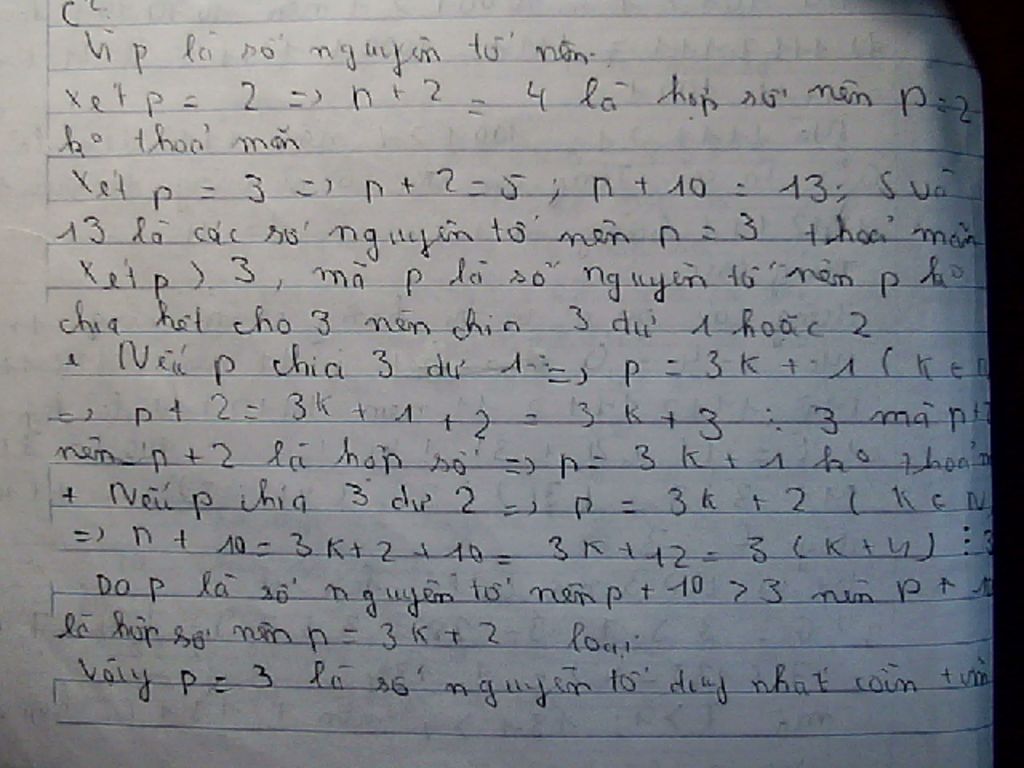 c
Vì p là số nguyên tố nên
Xét p = 2 => p + 2 = 4 là hợp số nên p = 2
ko thoả mãn
Xét p = 3 => p + 2 = 5 ; p + 10 = 13; 5 và
13 là các số nguyên tố nên p = 3 thoả mãn
Xét p > 3, mà p là số nguyên tố nên p ko
chia hết cho 3 nên chia 3 dư 1 hoặc 2
+ Nếu p chia 3 dư 1 => p = 3k + 1 ( k ∈
=> p + 2 = 3k + 1 + 2 = 3k + 3 ⋮ 3 mà p +
nên p + 2 là hợp số => p = 3k + 1 ko thoả
+ Nếu p chia 3 dư 2 => p = 3k + 2 ( k ∈ N
=> p + 10 = 3k + 2 + 10 = 3k + 12 = 3 ( k + 4 ) ⋮ 3
Do p là số nguyên tố nên p + 10 > 3 nên p +
là hợp số nên p = 3k + 2 loại
Vậy p = 3 là số nguyên tố duy nhất cần tìm